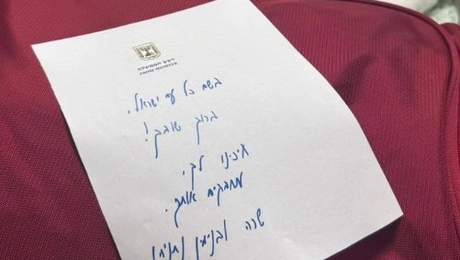 ראש הממשלה
PRIME MINISTER
בשם כל עם ישראל,
ברוך שובך!
חיכינו לך.
מחבקים אותך.
שרה ובנימין נתניהו